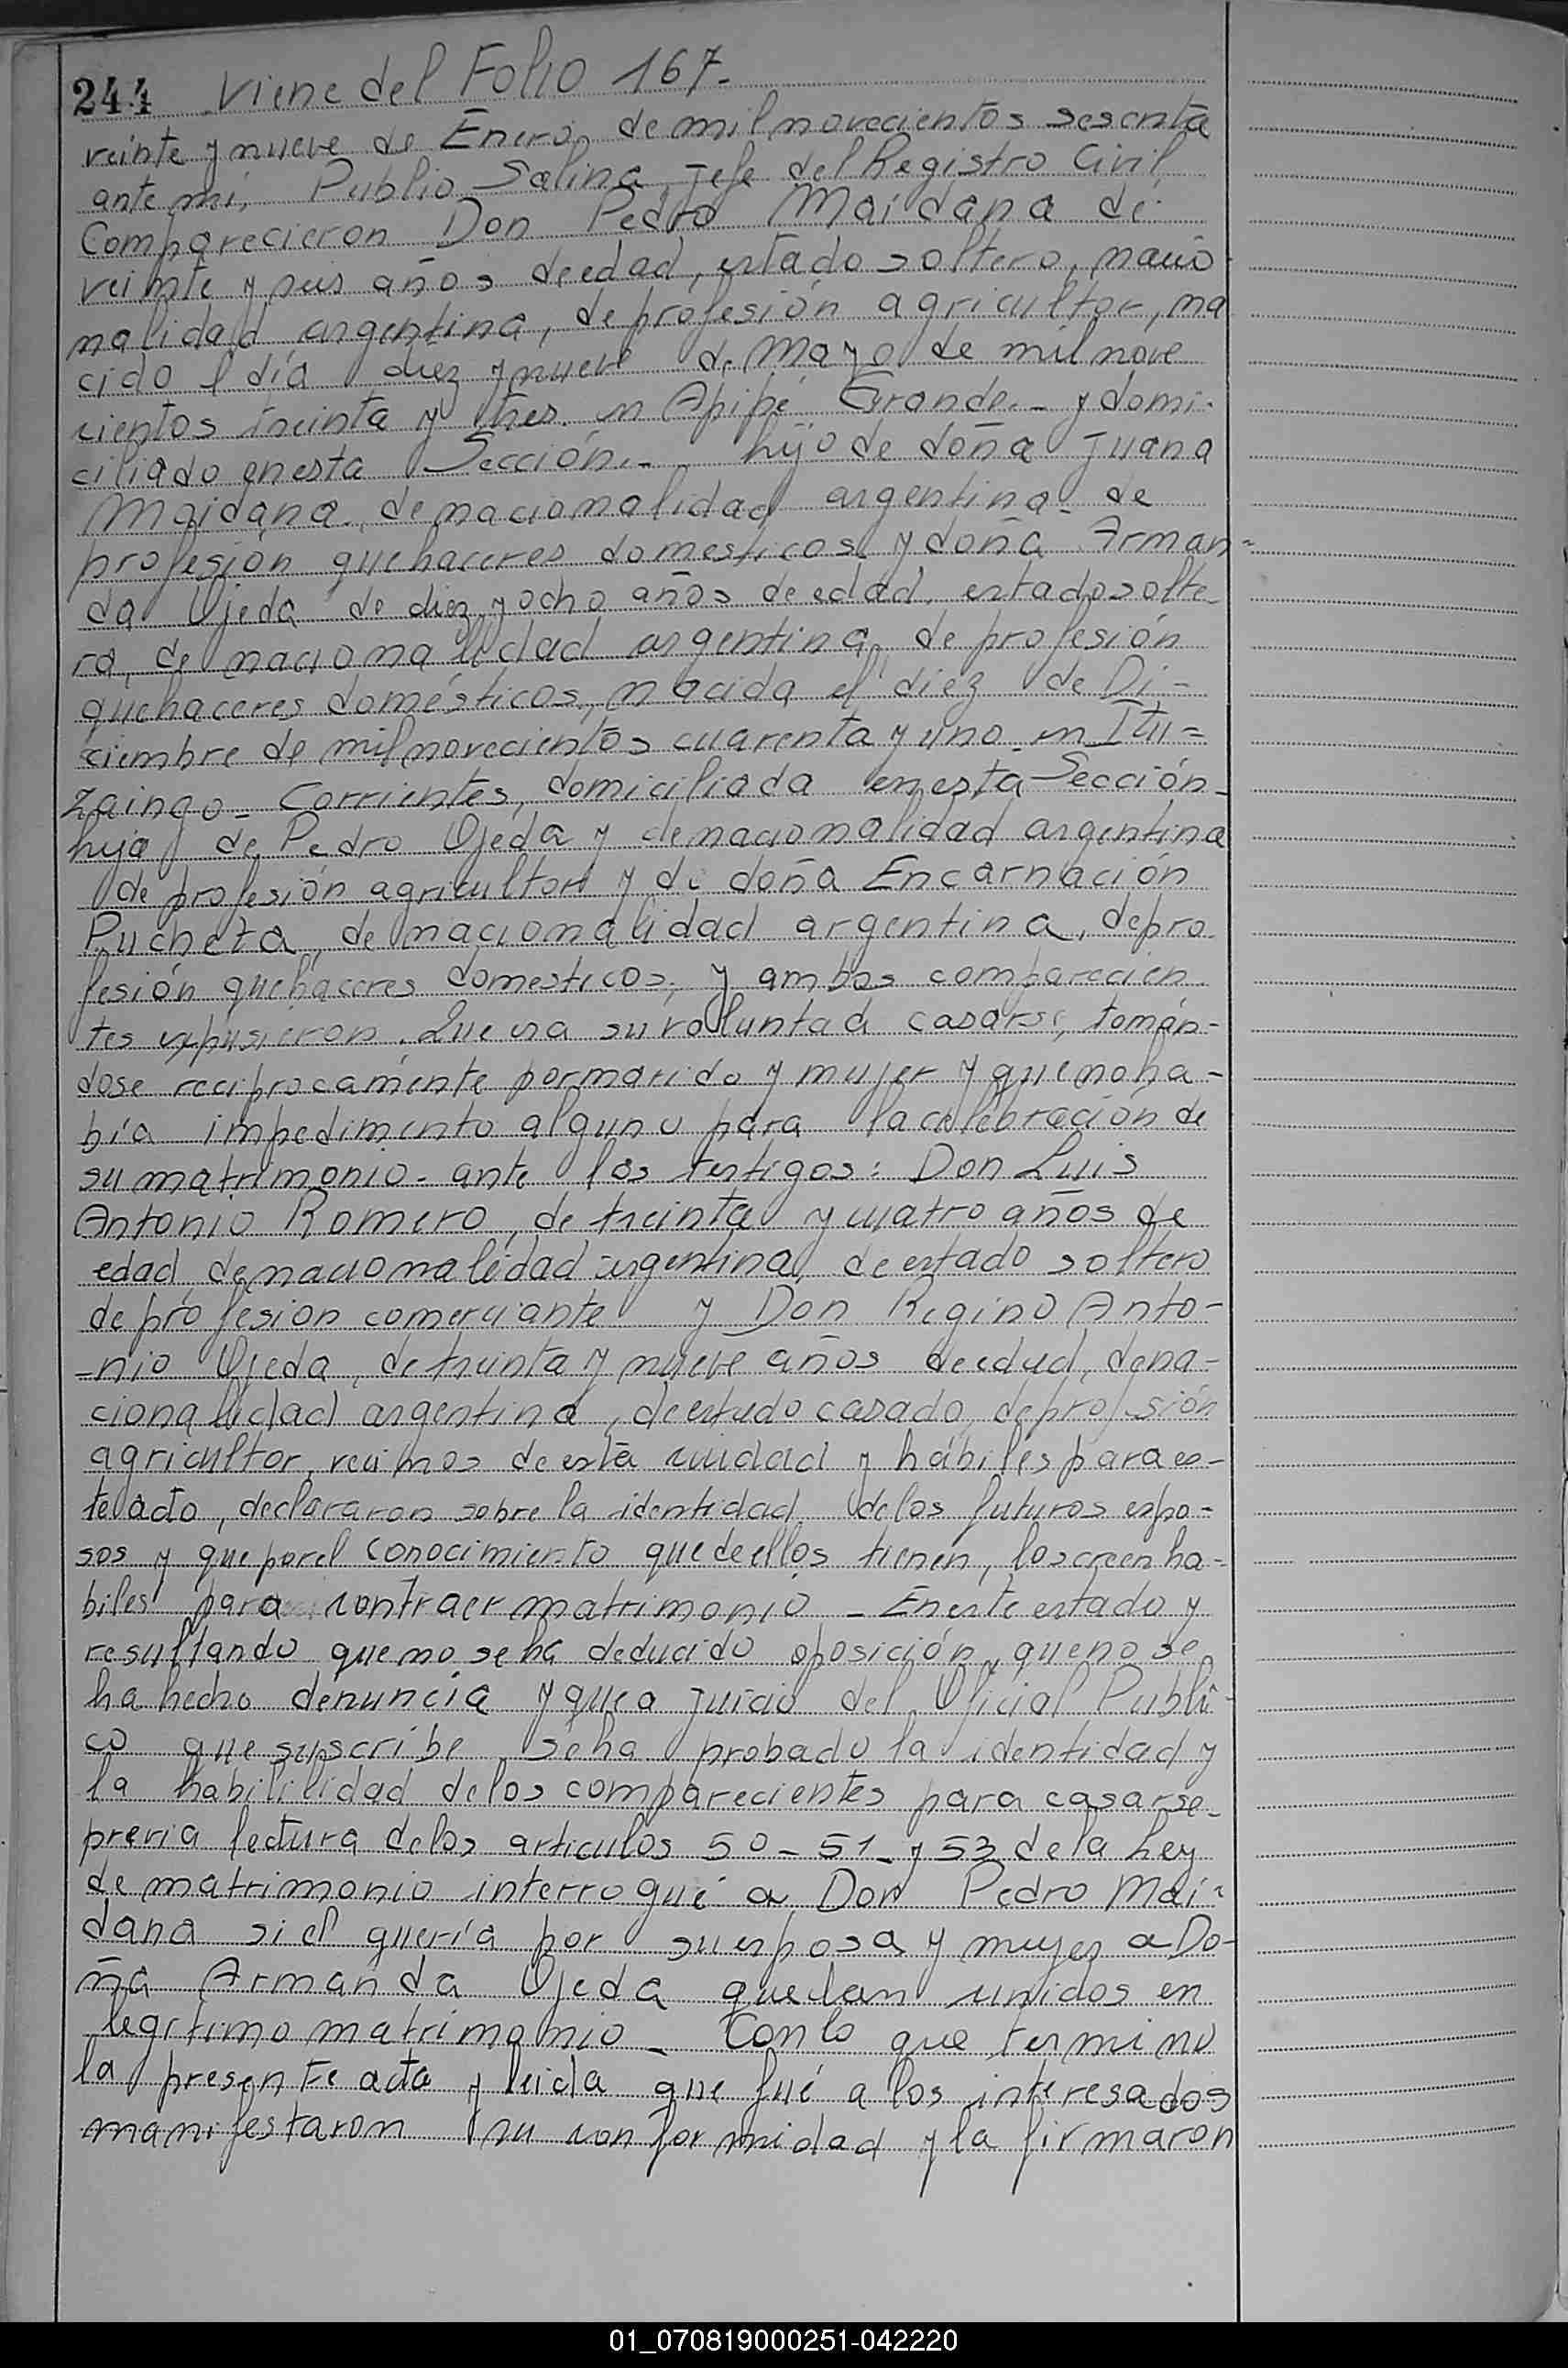 244 Viene del Folio 167.-
veinte y nueve de Enero, de mil novecientos sesenta
ante mi, Publio Salina, Jefe del Registro Civil
Comparecieron Don Pedro Maidana de
veinte y seis años de edad, estado soltero, nacio
nalidad argentina, de profesión agricultor, na
cido el día diez y nueve de Mayo de mil nove
cientos treinta y tres. en Apipé Grande.- y domi-
ciliado en esta Sección.- hijo de doña Juana
Maidana. de nacionalidad argentina- de
profesión quehaceres domesticos y doña Arman=
da Ojeda de diez y ocho años de edad, estado solte
ra, de nacionalidad argentina, de profesión
quehaceres domésticos, nacida el diez de Di-
ciembre de mil novecientos cuarenta y uno- en Itu=
zaingo- Corrientes, domiciliada en esta Sección-
hija de Pedro Ojeda y de nacionalidad argentina
de profesión agricultor y de doña Encarnación
Pucheta, de nacionalidad argentina, de pro
fesión quehaceres domesticos; y ambos comparecien
tes expusieron. Que era su voluntad casarse, tomán-
dose reciprocamente por marido y mujer y que no ha-
bía impedimento alguno para la celebración de
su matrimonio- ante los testigos: Don Luis
Antonio Romero, de treinta y cuatro años de
edad, de nacionalidad argentina, de estado soltero
de profesion comerciante y Don Regino Anto-
-nio Ojeda, de treinta y nueve años de edad, de na-
cionalidad argentina, de estado casado, de profesión
agricultor, vecinos de esta ciudad y hábiles para es-
te acto, declararon sobre la identidad de los futuros espo-
sos y que por el conocimiento que de ellos tienen, los creen ha-
biles para contraer matrimonio - En este estado y
resultando que no se ha deducido oposición, que no se
ha hecho denuncia y que a juicio del Oficial Publi-
co que suscribe se ha probado la identidad y
la habililidad de los comparecientes para casarse-
previa lectura de los articulos 50- 51- y 53 de la Ley
de matrimonio interrogué a Don Pedro Mai-
dana si el quería por su esposa y mujer a Do-
ña Armanda Ojeda quedan unidos en
legitimo matrimonio - Con lo que termino
la presente acta y leida que fué a los interesados
manifestaron su conformidad y la firmaron
01_070819000251-042220